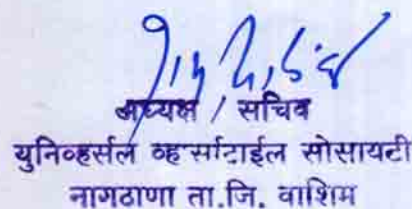 अध्यक्ष / सचिव
युनिव्हर्सल व्हर्साटाईल सोसायटी
नागठाणा ता.जि. वाशिम